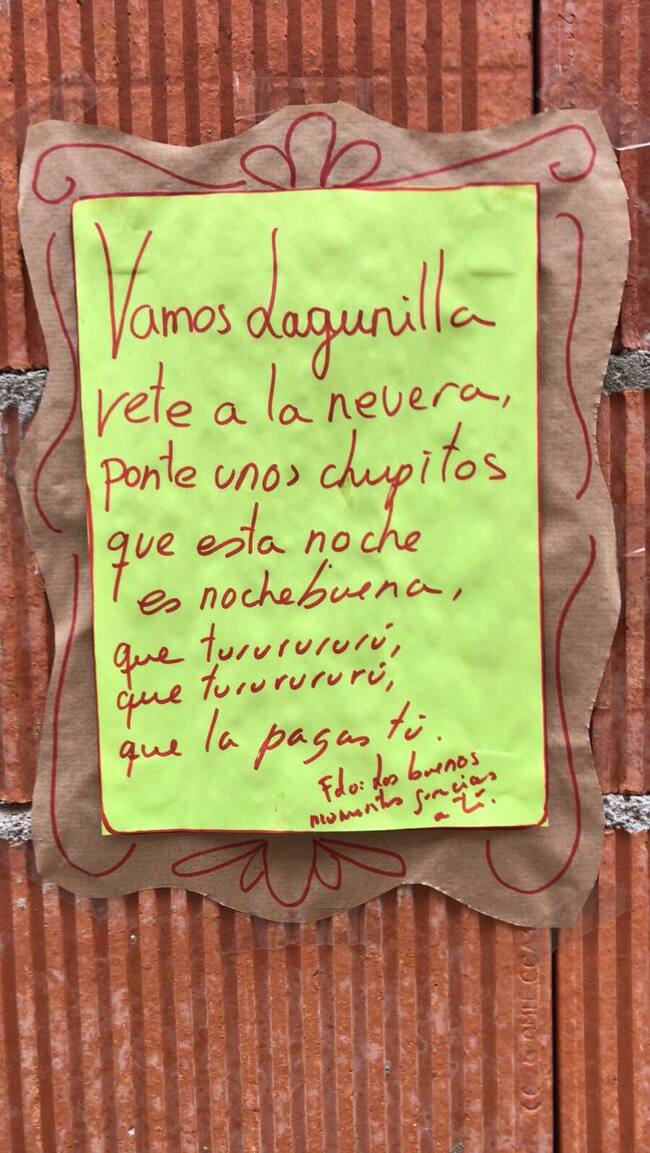 Vamos Lagunilla
vete a la nevera,
ponte unos chupitos
que esta noche
es nochebuena,
que turururururú,
que turururururú,
que la pagas tú.
Fdo: Los buenos
momentos gracias
a tí.